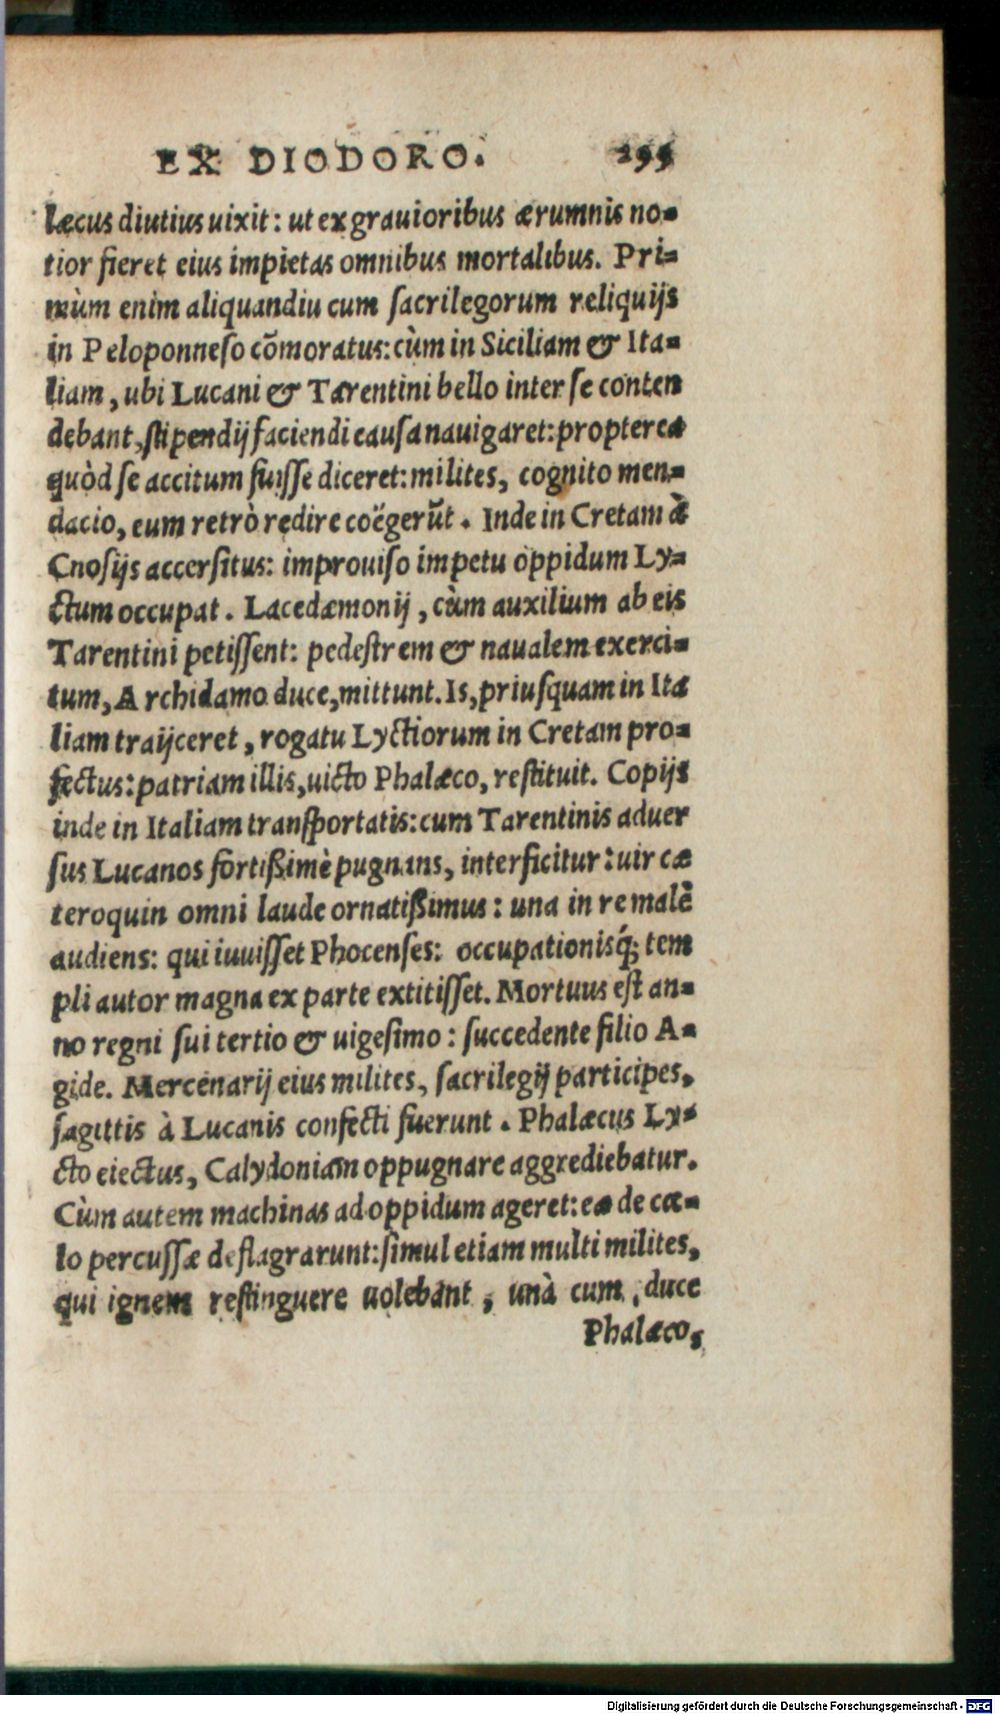 EX DIODORO. 295
læcus diutius uixit: ut ex grauioribus ærumnis no-
tior fieret eius impietas omnibus mortalibus. Pri-
mùm enim aliquandiu cum sacrilegorum reliquijs
in Peloponneso cõmoratus: cùm in Siciliam & Ita-
liam, ubi Lucani & Tarentini bello inter se conten
debant, stipendij faciendi causa nauigaret: propterea
quòd se accitum fuisse diceret: milites, cognito men-
dacio, eum retrò redire coëgerũt. Inde in Cretam à
Cnosijs accersitus: improuiso impetu oppidum Ly-
ctum occupat. Lacedæmonij, cùm auxilium ab eis
Tarentini petissent: pedestrem & naualem exerci-
tum, Archidamo duce, mittunt. Is, priusquam in Ita
liam traijceret, rogatu Lyctiorum in Cretam pro-
fectus: patriam illis, uicto Phalæco, restituit. Copijs
inde in Italiam transportatis: cum Tarentinis aduer
sus Lucanos fortißimè pugnans, interficitur: uir cæ
teroquin omni laude ornatißimus: una in re malè
audiens: qui iuuisset Phocenses: occupationisq́; tem
pli autor magna ex parte extitisset. Mortuus est an-
no regni sui tertio & uigesimo: succedente filio A-
gide. Mercenarij eius milites, sacrilegij participes,
sagittis à Lucanis confecti fuerunt. Phalæcus Ly-
cto eiectus, Calydoniam oppugnare aggrediebatur.
Cùm autem machinas ad oppidum ageret: eæ de cæ-
lo percussæ deflagrarunt: simul etiam multi milites,
qui ignem restinguere uolebant, unà cum duce
Phalæco,
Digitalisierung gefördert durch die Deutsche Forschungsgemeinschaft - DFG